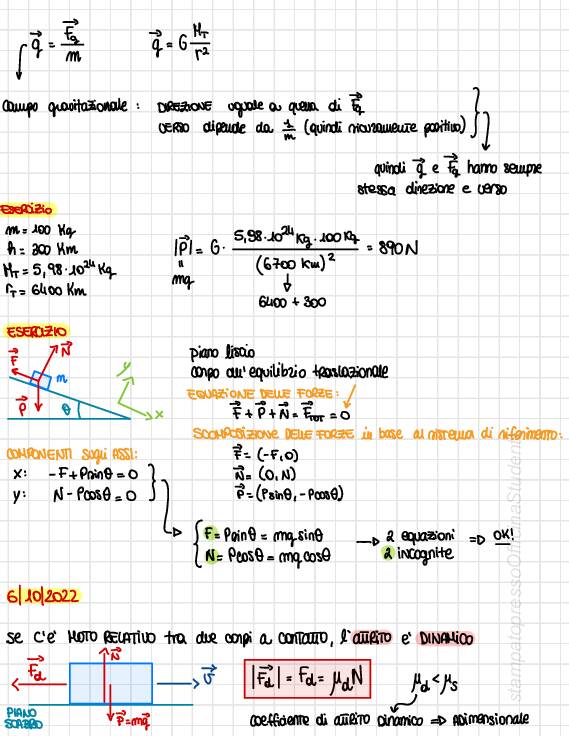 g⃗ = F⃗g/m    g⃗ = G MT/r²
campo gravitazionale : DIREZIONE uguale a quella di F⃗g
VERSO dipende da 1/m (quindi sicuramente positivo)
quindi g⃗ e F⃗g hanno sempre
stessa direzione e verso
ESERCIZIO
m = 100 Kg
h = 300 Km
MT = 5,98·10²⁴ Kg
rT = 6400 Km
|P⃗| = G · 5,98·10²⁴ Kg · 100 Kg / (6700 Km)² = 890 N
=
mg
6400 + 300
ESERCIZIO
F⃗ N⃗ m P⃗ θ y x
piano liscio
corpo all'equilibrio traslazionale
EQUAZIONE DELLE FORZE:
F⃗ + P⃗ + N⃗ = F⃗TOT = 0
SCOMPOSIZIONE DELLE FORZE in base al sistema di riferimento:
F⃗ = (-F, 0)
N⃗ = (0, N)
P⃗ = (Psinθ, -Pcosθ)
COMPONENTI sugli ASSI:
x: -F + Psinθ = 0
y: N - Pcosθ = 0
F = Psinθ = mg sinθ
N = Pcosθ = mg cosθ
→ 2 equazioni
2 incognite
⇒ OK!
6|10|2022
SE C'E' MOTO RELATIVO tra due corpi a CONTATTO, l'ATTRITO e' DINAMICO
F⃗d N⃗ v⃗ P⃗=mg⃗
PIANO
SCABRO
|F⃗d| = Fd = μd N
μd < μs
coefficiente di ATTRITO DINAMICO ⇒ ADIMENSIONALE
stampatopressoOfficinaStudenti